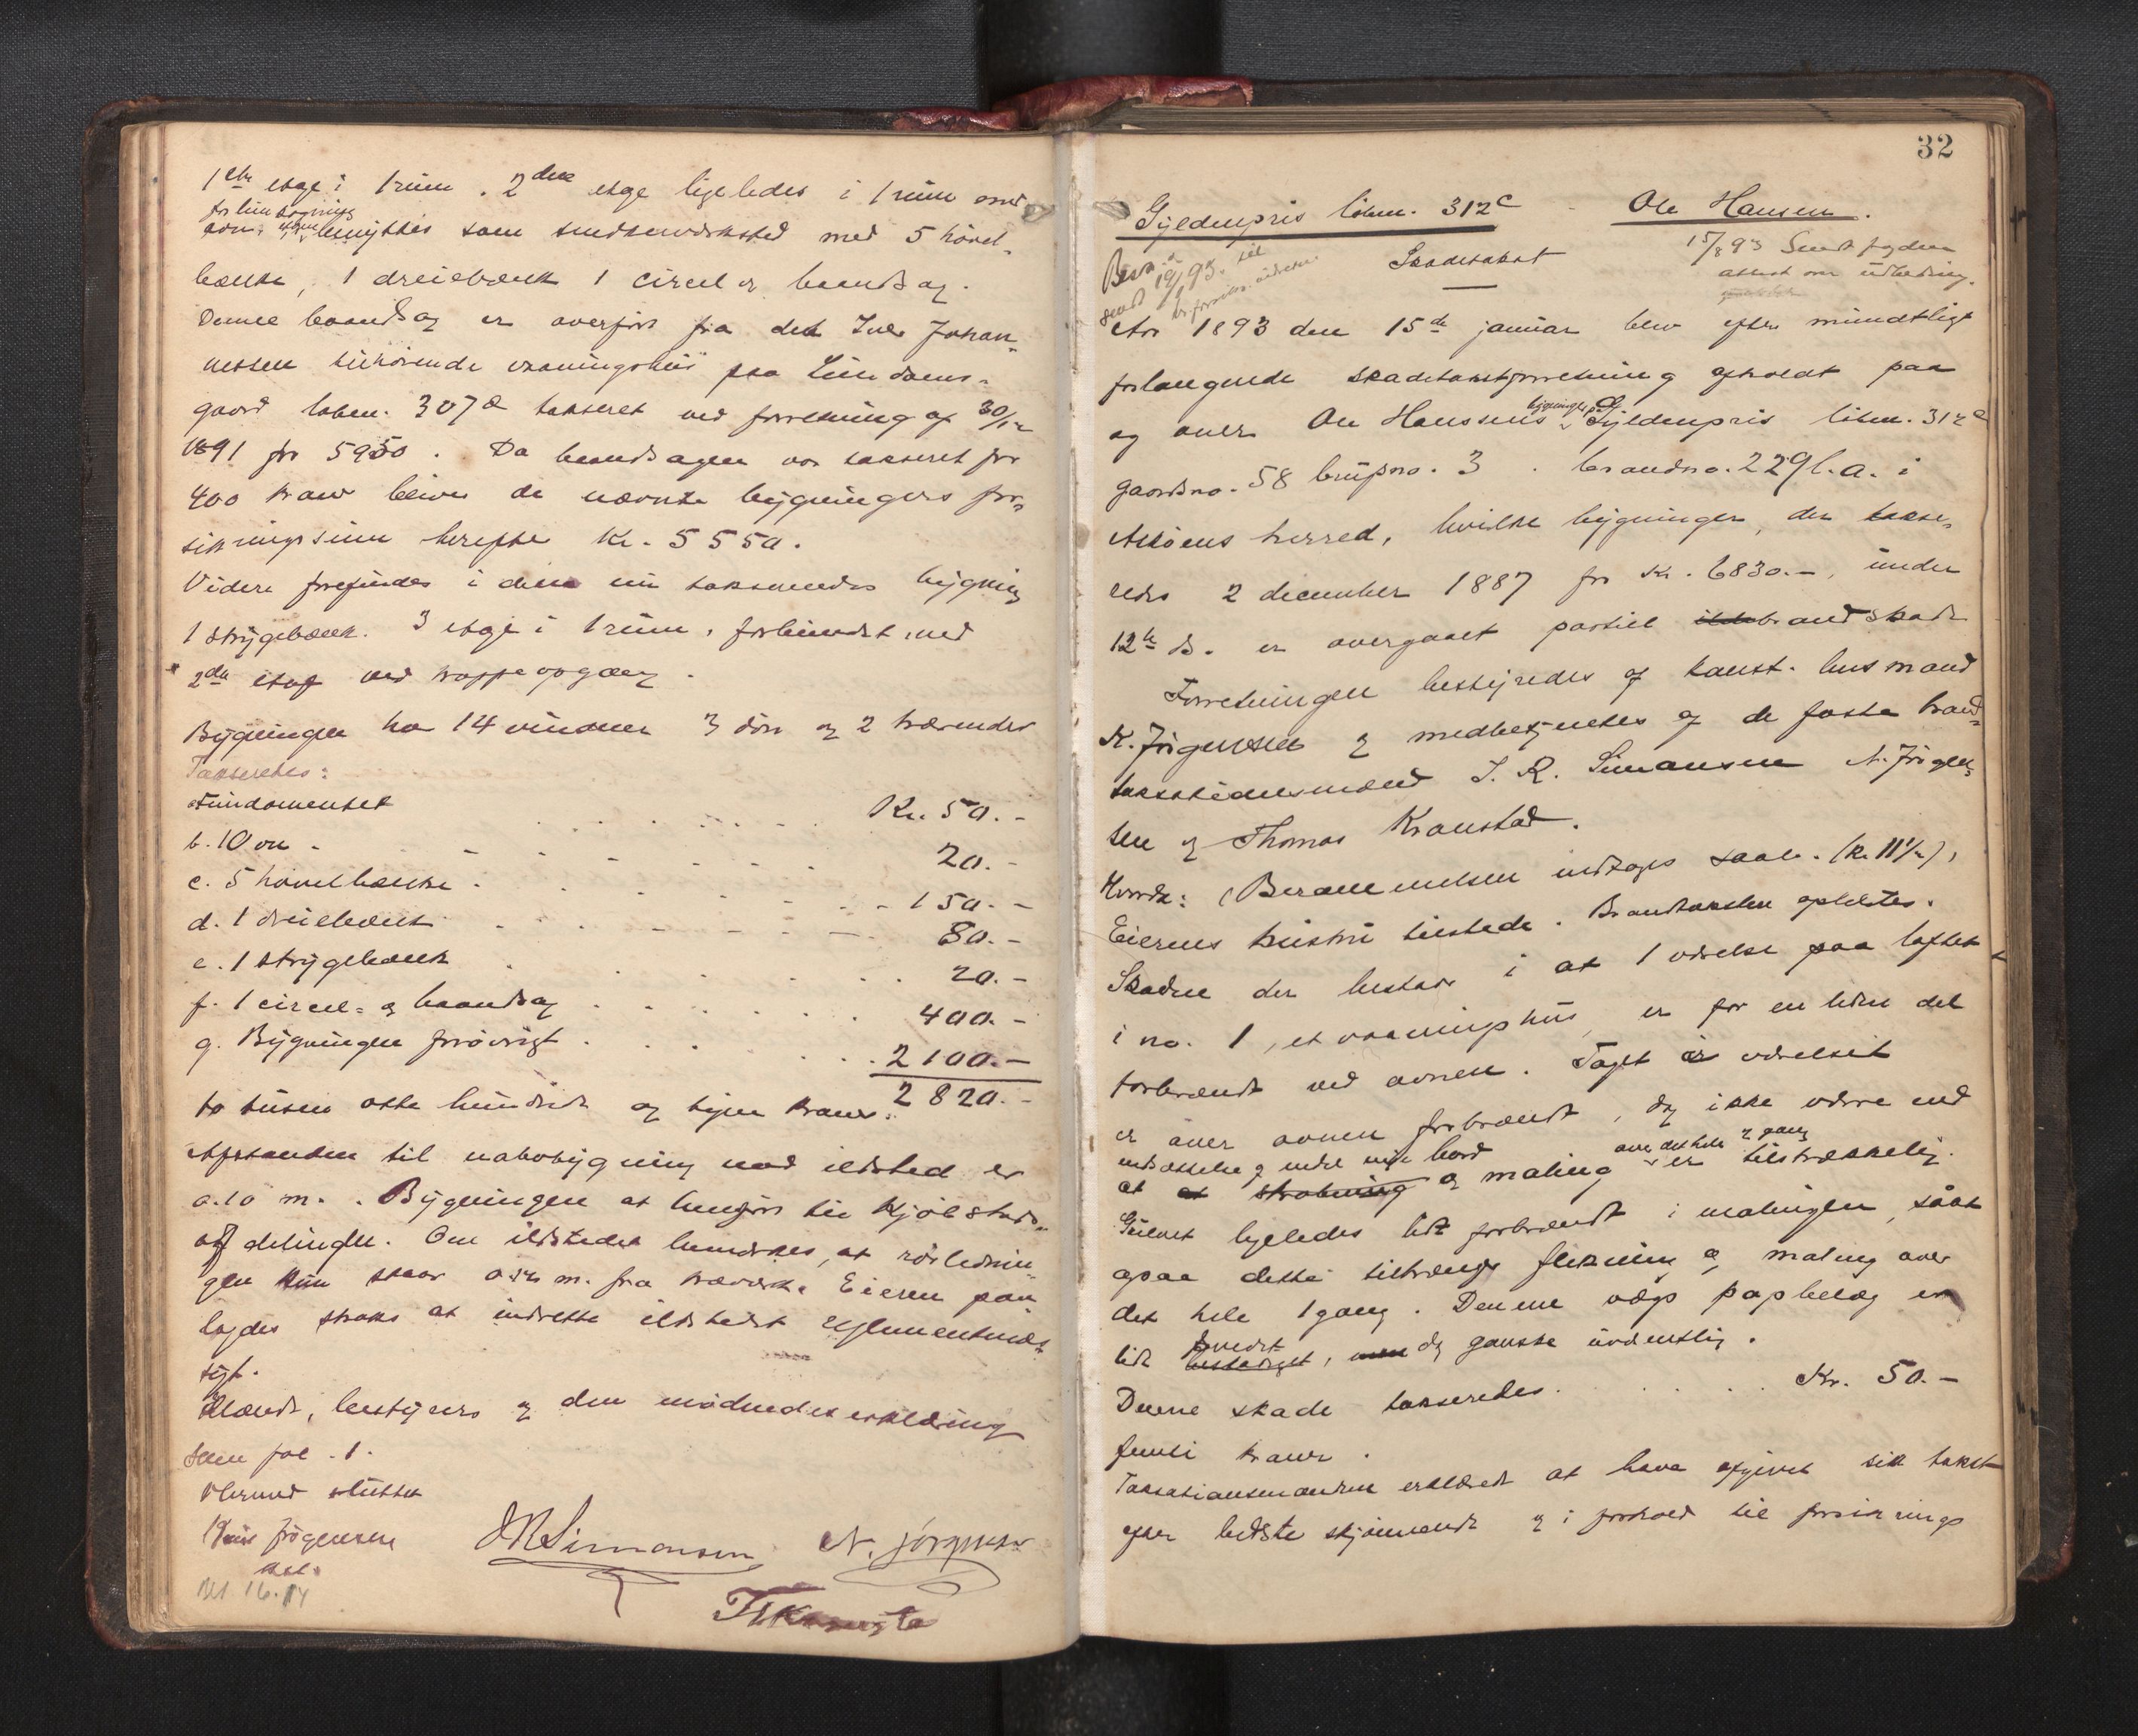 1ste etage i 1 rum. 2den etage ligeledes i 1 rum med
for limkogning
ovn, benyttes som snedkerværksted med 5 hövel-
bænke, 1 dreiebænk 1 circel og baandsag.
Denne baandsag er overført fra det Iver Johan-
nessen tilhörende vaaningshus paa Lien Dams-
gaard löben. 307 a takseret ved forretning af 30/12
1891 for 5950. Da baandsagen var takseret for
400 kroner blive de nævnte bygningers for-
sikringssum herefter Kr. 5550.
Videre forefindes i den nu takserendes bygning
1 strygebænk. 3 etage i 1 rum, forbundet med
2den etage ved trappeopgang.
Bygningen har 14 vinduer 3 döre og 2
Takseredes:
a. Fundamentet Kr. 50.-
b. 1 Ovn 20.-
c. 5 hövelbænke 150.-
d. 1 dreiebænk 80.-
e. 1 strygebænk 20.-
f. 1 circel- og baandsag 400.-
g. Bygningen forövrigt 2100.-
2820.-
to tusen otte hundrede og tyve kroner.
Afstanden til nabobygning med ildsted er
0.10 m. Bygningen at henföre til Kjöbstads-
afdelingen. Om ildstedet bemærkes, at rörlednin-
gen kun staar m. fra træværk. Eieren paa-
lagdes straks at indrette ildstedet reglementmæs-
sigt.
Mænds, bestyrers og den mödendes erklæring
som fol. 1.
Hermed sluttet
Knud Jörgensen
kst.
Bet. 16.14
J R Simonsen N. Jörgensen
Th Kronstad
32
Gyldenpris löben. 312 c - Ole Hansen.
Skadetakst
15/8 93 Sendt fogden
attest om udbedring.
Besk.
sendt 19/1 93. til
brforsikr. indretn.
Aar 1893 den 15de januar blev efter mundtligt
forlangende skadetakstforretning afholdt paa
bygninger paa
og over Ole Hanssens Gyldenpris löben. 312 c
gaardsno. 58 brugsno. 3. brandno. 229 l. a. i
Asköens herred, hvilke bygninger, der takse-
redes 2 december 1887 for Kr. 6830.-, under
12te ds. er overgaaet partiel brandskade
Forretningen bestyredes af konst. lensmand
K. Jörgensen og medbetjentes af de faste brand-
takstationsmænd J. R. Simonsen N. Jörgen-
sen og Thomas Kronstad.
Hvorda: (Berammelsen indtages saal. (Kr 11 1/2),
Eierens hustru tilstede. Brandtaksten oplæstes.
Skaden der bestaar i at 1 værelse paa loftet
i no. 1, et vaaningshus, er for en liden del
forbrændt ved ovnen. Taget i værelset
er over ovnen forbrændt, dog ikke værre end
indsættelse af endel nye bord over det hele 2 gang
at at skrabning og maling er tilstrækkelig.
Gulvet ligeledes lidt forbrændt i malingen, saat
ogsaa dette tiltrænges flikning og maling over
det hele 1 gang. Denne vægs papbelæg er
svedet
lidt beskadiget, men dog ganske uvæsentlig.
Denne skade takseredes Kr. 50.-
femti kroner.
Taksationsmændene erklærede at have afgivet sin takst
efter bedste skjönnende og i forhold til forsikrings